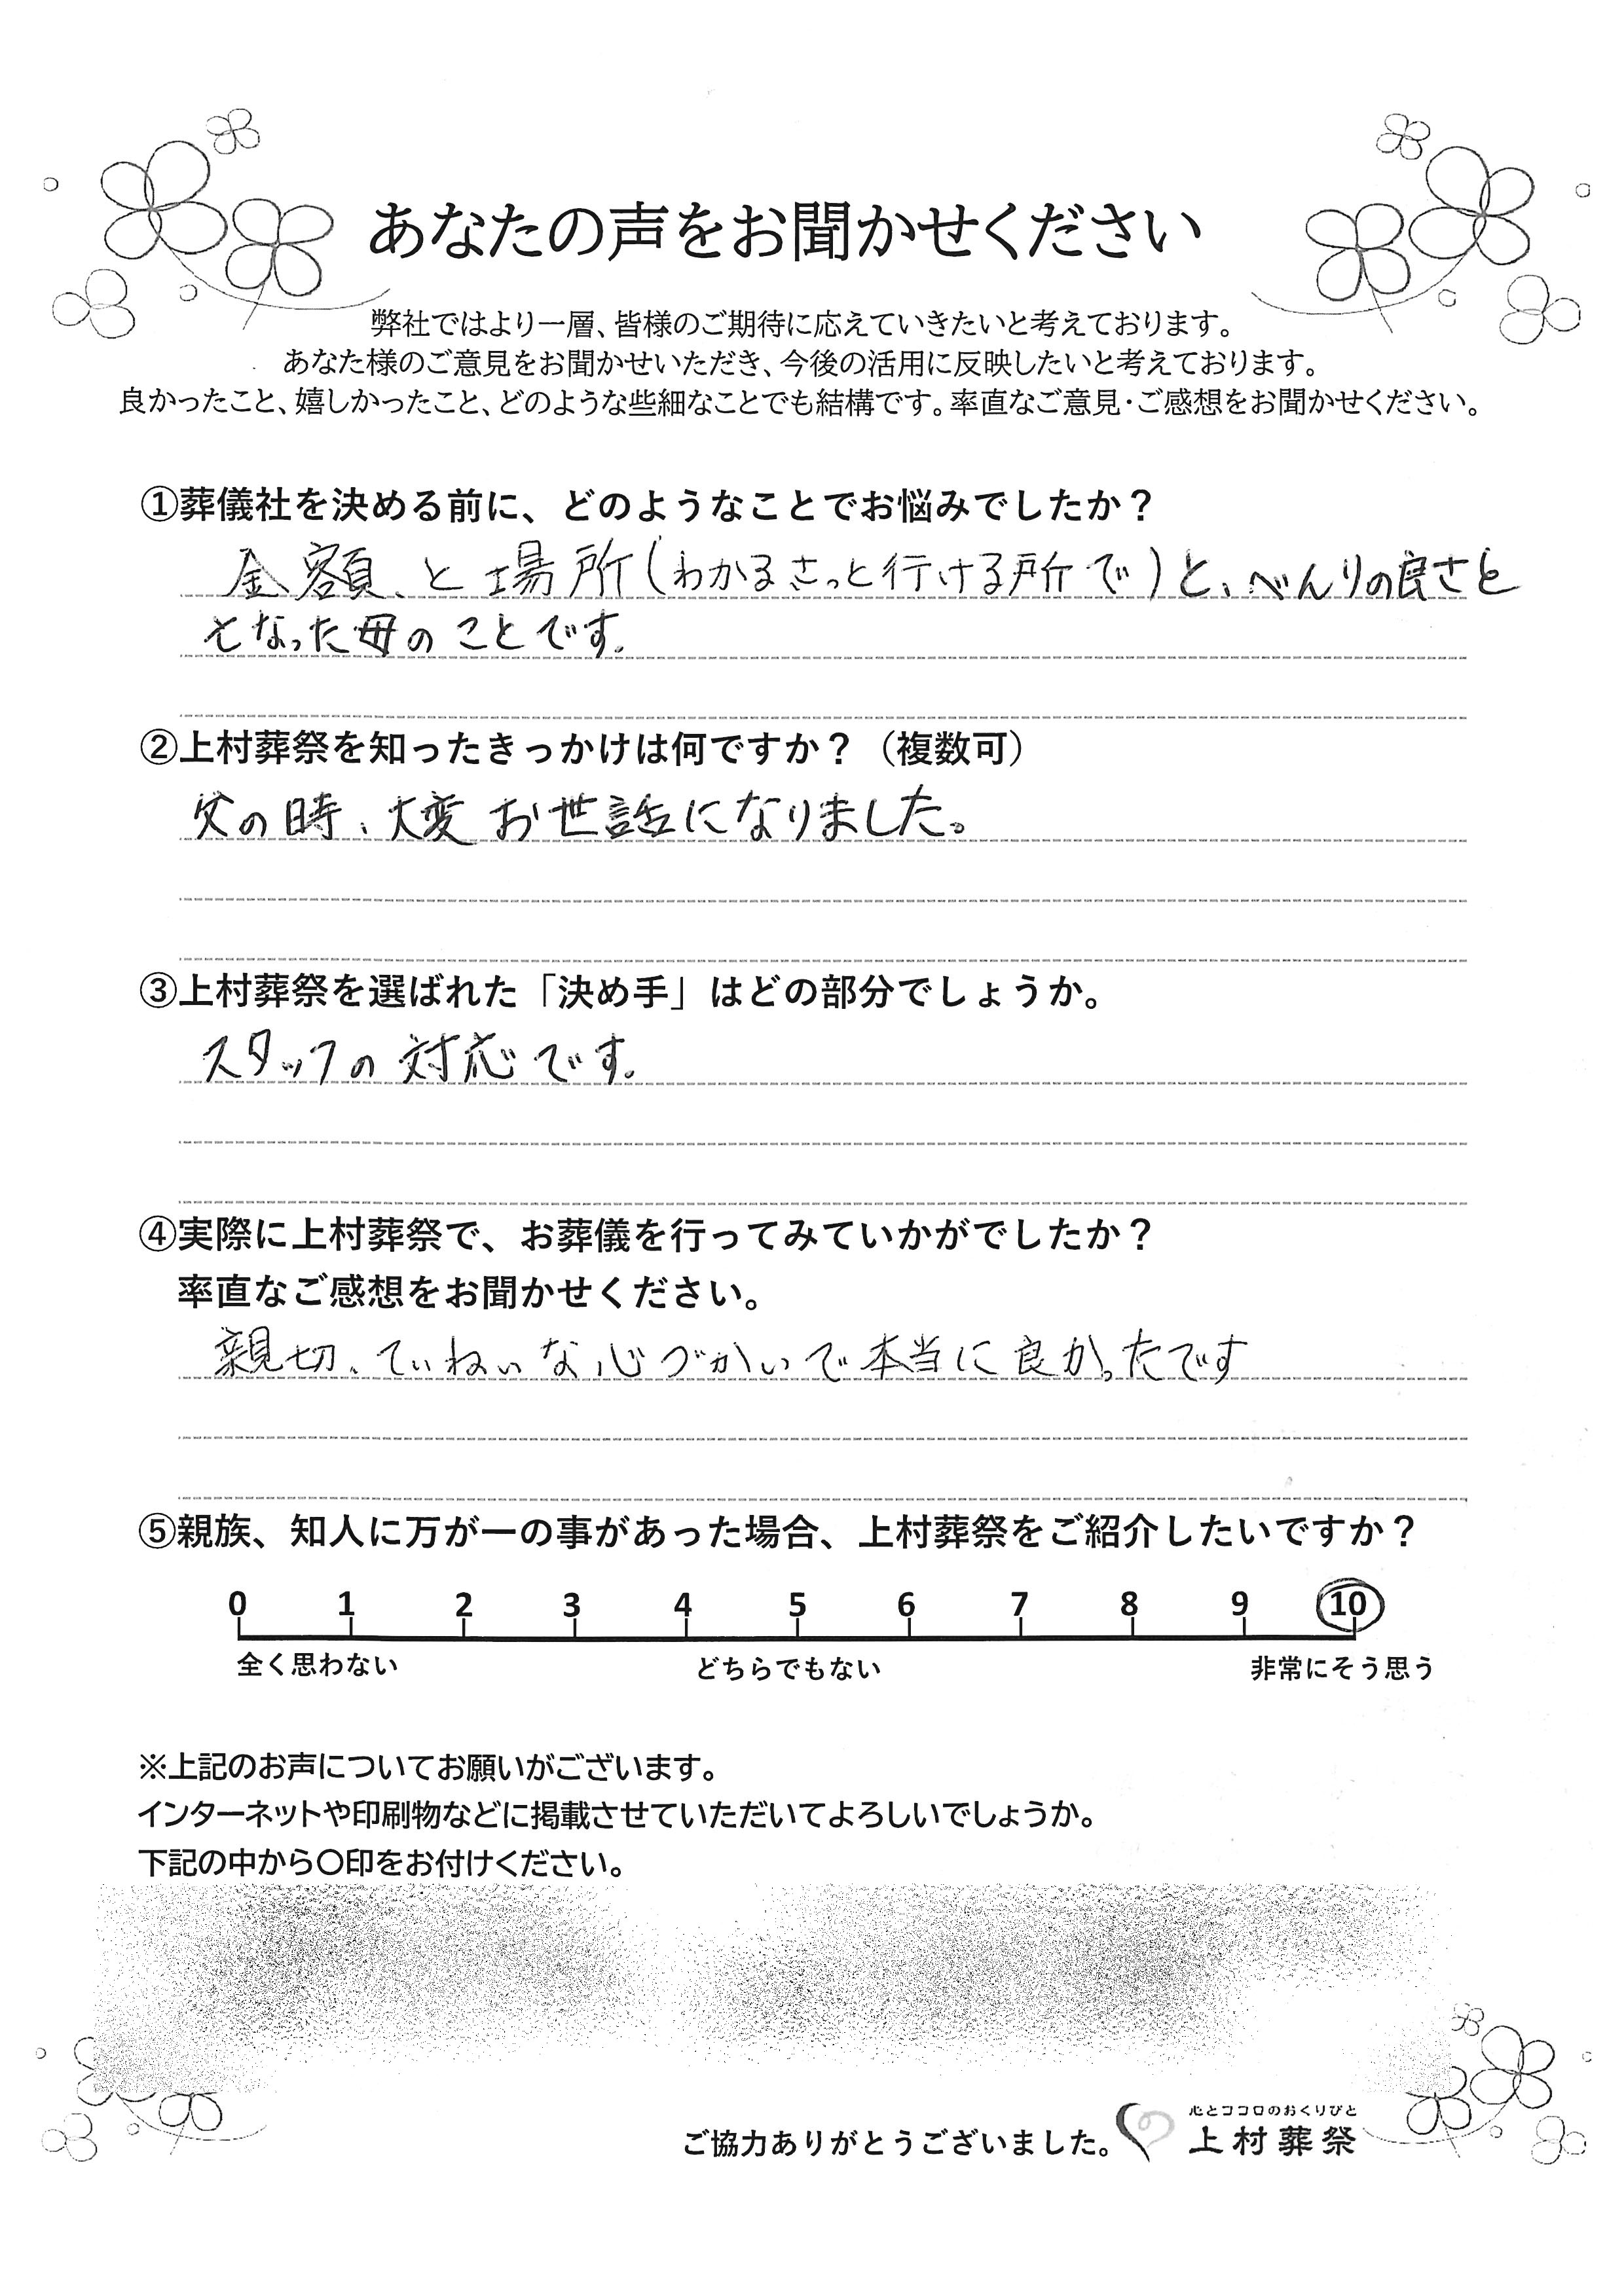 あなたの声をお聞かせください
弊社ではより一層、皆様のご期待に応えていきたいと考えております。
あなた様のご意見をお聞かせいただき、今後の活用に反映したいと考えております。
良かったこと、嬉しかったこと、どのような些細なことでも結構です。率直なご意見・ご感想をお聞かせください。
①葬儀社を決める前に、どのようなことでお悩みでしたか？
金額、と場所(わかるさっと行ける所で)と、べんりの良さと
となった母のことです。
②上村葬祭を知ったきっかけは何ですか？（複数可）
父の時、大変お世話になりました。
③上村葬祭を選ばれた「決め手」はどの部分でしょうか。
スタッフの対応です。
④実際に上村葬祭で、お葬儀を行ってみていかがでしたか？
率直なご感想をお聞かせください。
親切、ていねいな心づかいで本当に良かったです
⑤親族、知人に万が一の事があった場合、上村葬祭をご紹介したいですか？
0 1 2 3 4 5 6 7 8 9 10
全く思わない どちらでもない 非常にそう思う
※上記のお声についてお願いがございます。
インターネットや印刷物などに掲載させていただいてよろしいでしょうか。
下記の中から〇印をお付けください。
心とココロのおくりびと
ご協力ありがとうございました。 上村葬祭